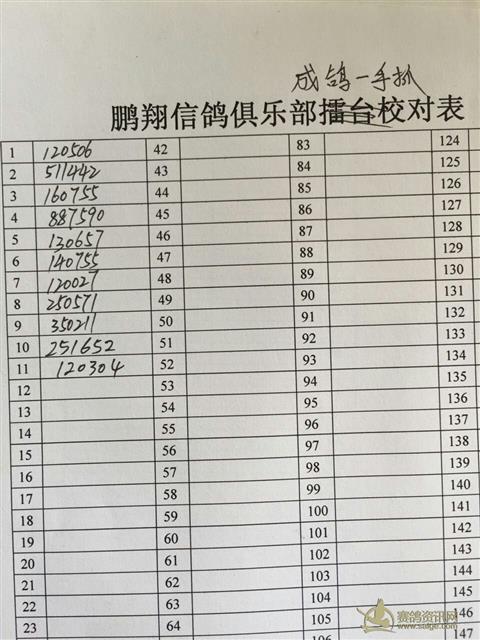 成鸽一手抓
鹏翔信鸽俱乐部擂台校对表
1 120506 42 83 124
2 511442 43 84 125
3 160755 44 85 126
4 887590 45 86 127
5 130657 46 87 128
6 140755 47 88 129
7 120027 48 89 130
8 250571 49 90 131
9 350211 50 91 132
10 251652 51 92 133
11 120304 52 93 134
12 53 94 135
13 54 95 136
14 55 96 137
15 56 97 138
16 57 98 139
17 58 99 140
18 59 100 141
19 60 101 142
20 61 102 143
21 62 103 144
22 63 104 145
23 64 105 146
106 147
赛鸽资讯网
www.saige.com